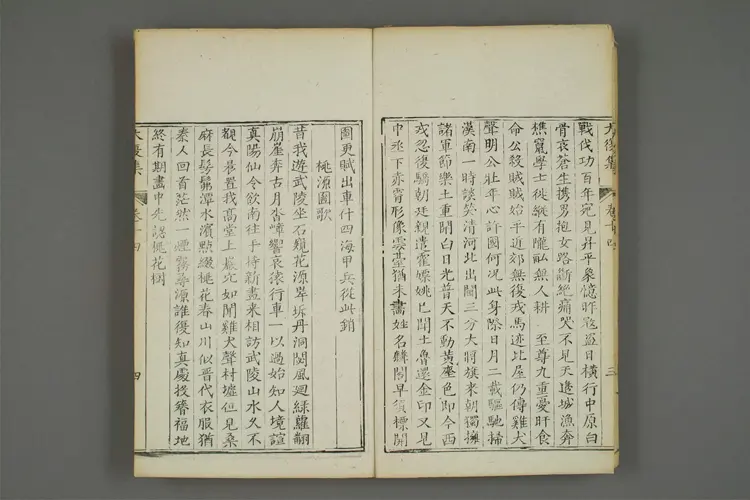 大復集
卷十四
三
戰伐功百年宛見昇平象憶昨寇盜日橫行中原白
骨哀蒼生携男抱女路斷絶痛哭不見天邊城漁奔
樵竄學士徒縱有隴畝無人耕 至尊九重憂旰食
命公殺賊賊始平近郊無復戎馬迹比屋仍傳雞犬
聲明公壯年心許國何况此身際日月二載驅馳掃
漢南一時談笑清河北出關三分大將旗來朝獨擁
諸軍節樂土重開白日光普天不動黄塵色即今西
戎忽復驕朝廷親遣霍嫖姚已聞土魯還金印又見
中丞下赤霄形像雲臺猶未畫姓名麟閣早須標開
圖更賦出車什四海甲兵從此銷
桃源圖歌
昔我遊武陵坐石窺花源翠坼丹洞閟風迴綠蘿翻
崩崖奔古月杳嶂響哀猿行車一以過始知人境諠
真陽仙令飲南徃手持新畫来相訪武陵山水久不
覩今晨置我髙堂上巖穴如聞雞犬聲村墟但見桑
麻長髣髴潭水濱點綴桃花春山川似晋代衣服猶
秦人回首茫然一煙霧尋源誰復知真處投簪福地
終有期畫中先 桃花樹
大復集
卷十四
四